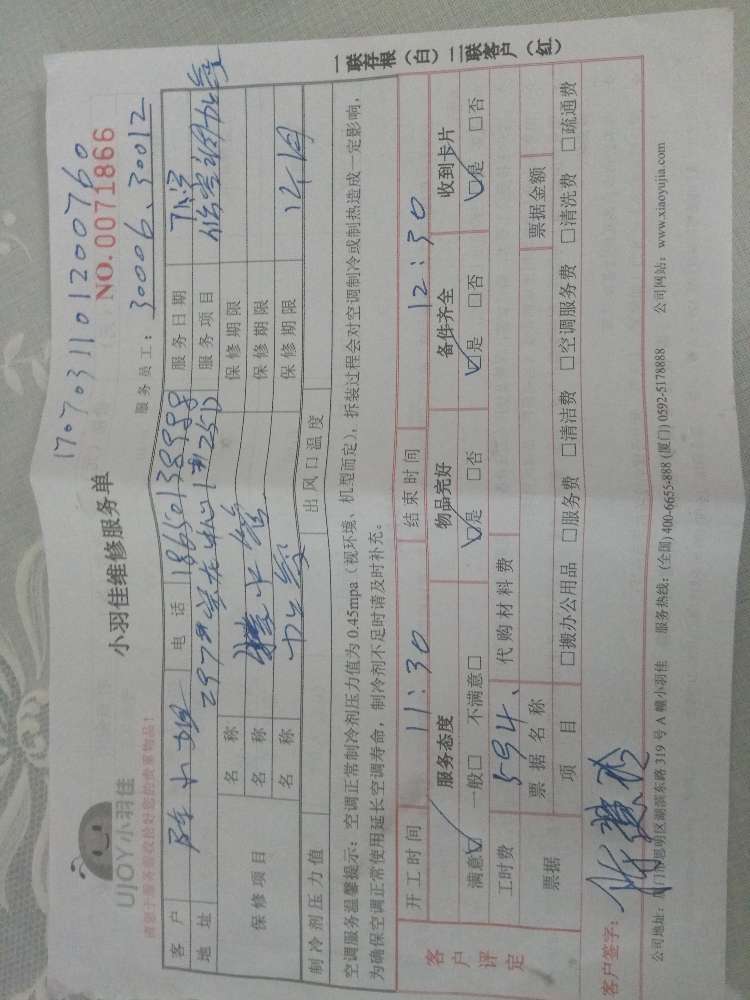 170703110120760
NO.0071866
UJOY小羽佳
小羽佳维修服务单
请您于服务前收拾好您的贵重物品!
服务员工: 30006、30012
客户 电话 18650138988 服务日期
地址 服务项目
保修项目 名称 保修期限
名称 保修期限
名称 保修期限
制冷剂压力值 出风口温度
空调服务温馨提示:空调正常制冷剂压力值为0.45mpa(视环境、机型而定),拆装过程会对空调制冷或制热造成一定影响,
为确保空调正常使用延长空调寿命,制冷剂不足时请及时补充。
一联存根(白)二联客户(红)
客户评定
开工时间 11:30 结束时间 12:30
服务态度 物品完好 备件齐全 收到卡片
满意☑ 一般□ 不满意□ ☑是 □否 ☑是 □否 ☑是 □否
工时费 594、 代购材料费
票据 票据名称 票据金额
项目 □搬办公用品 □服务费 □清洁费 □空调服务费 □清洗费 □疏通费
客户签字:
公司地址:厦门市思明区湖滨东路319号A幢小羽佳 服务热线:(全国)400-6655-888(厦门)0592-5178888 公司网站:www.xiaoyujia.com